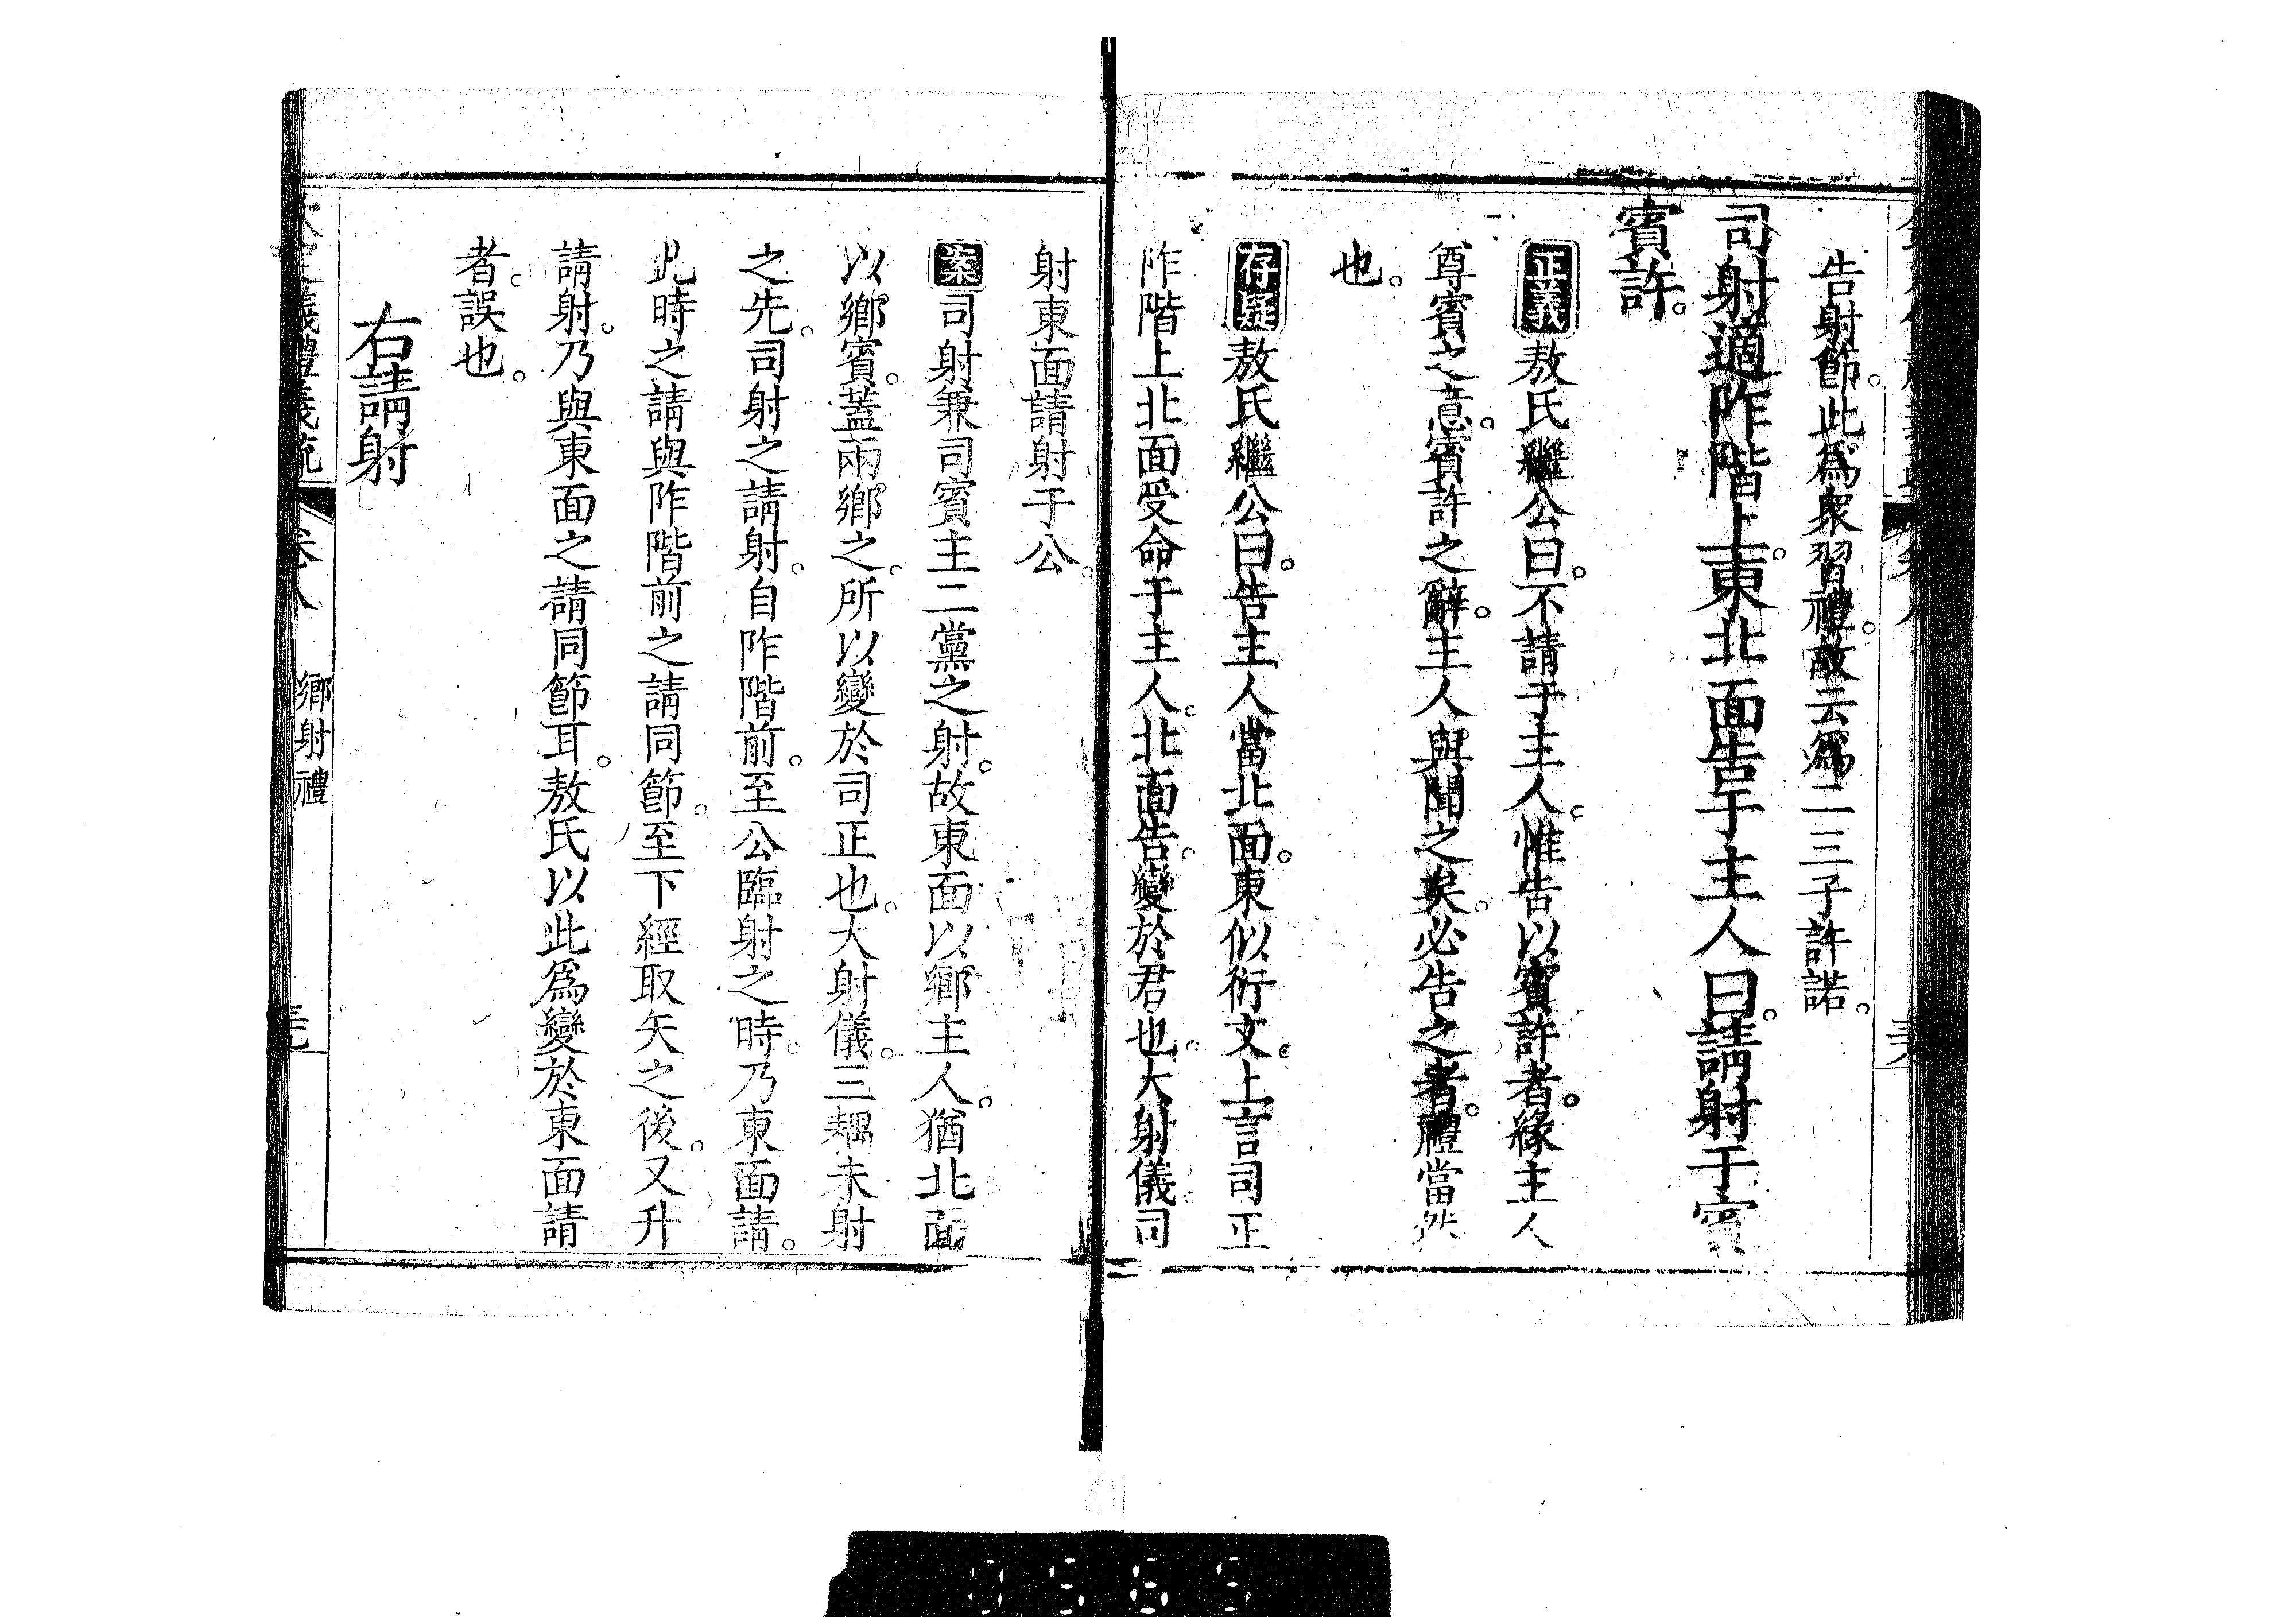 告射節。此爲衆習禮。故云爲二三子許諾。
司射適阼階上。東北面告于主人曰。請射于賓
賓許。
正義敖氏繼公曰。不請于主人。惟告以賓許者。緣主人
尊賓之意。賓許之辭。主人與聞之矣。必告之者。禮當然
也。
存疑敖氏繼公曰。告主人當北面。東似衍文。上言司正
阼階上北面受命于主人。北面告。變於君也。大射儀。司
射東面請射于公。
案司射兼司賓主二黨之射。故東面以鄉主人。猶北面
以鄉賓。蓋兩鄉之。所以變於司正也。大射儀。三耦未射
之先。司射之請射。自阼階前。至公臨射之時。乃東面請。
此時之請與阼階前之請同節。至下經取矢之後。又升
請射。乃與東面之請同節耳。敖氏以此爲變於東面請
者。誤也。
右請射
儀禮義疏 卷八 鄉射禮